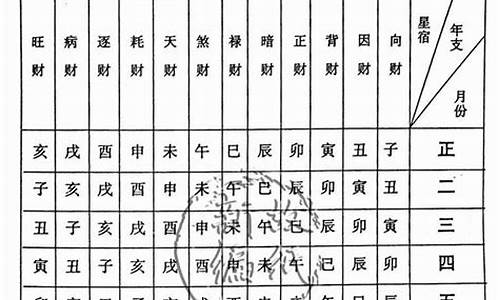 旺财 病财 逐财 耗财 天财 煞财 禄财 暗财 正财 背财 因财 向财 星宿 年支 月份
亥 戌 酉 申 未 午 巳 辰 卯 寅 丑 子 正
子 亥 戌 酉 申 未 午 巳 辰 卯 寅 丑 二
丑 子 亥 戌 酉 申 未 午 巳 辰 卯 寅 三
寅 丑 子 亥 戌 酉 申 未 午 巳 辰 卯 四